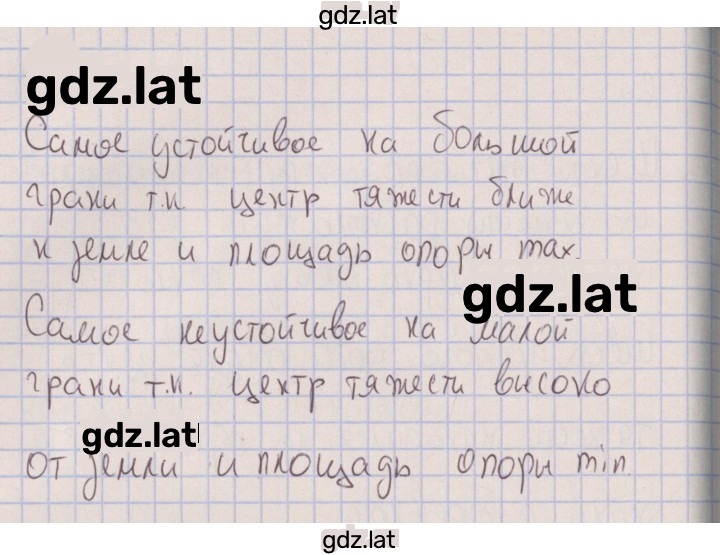 gdz.lat
gdz.lat
Самое устойчивое на большой
грани т.к. центр тяжести ближе
к земле и площадь опоры max.
gdz.lat
Самое неустойчивое на малой
грани т.к. центр тяжести высоко
gdz.lat
от земли и площадь опоры min.
gdz.lat